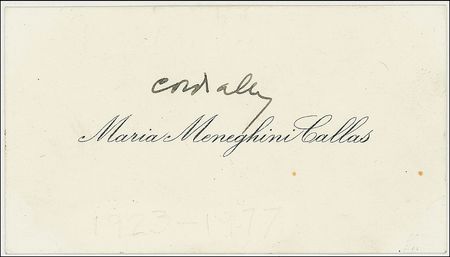 cordially
Maria Meneghini Callas
1923-1977